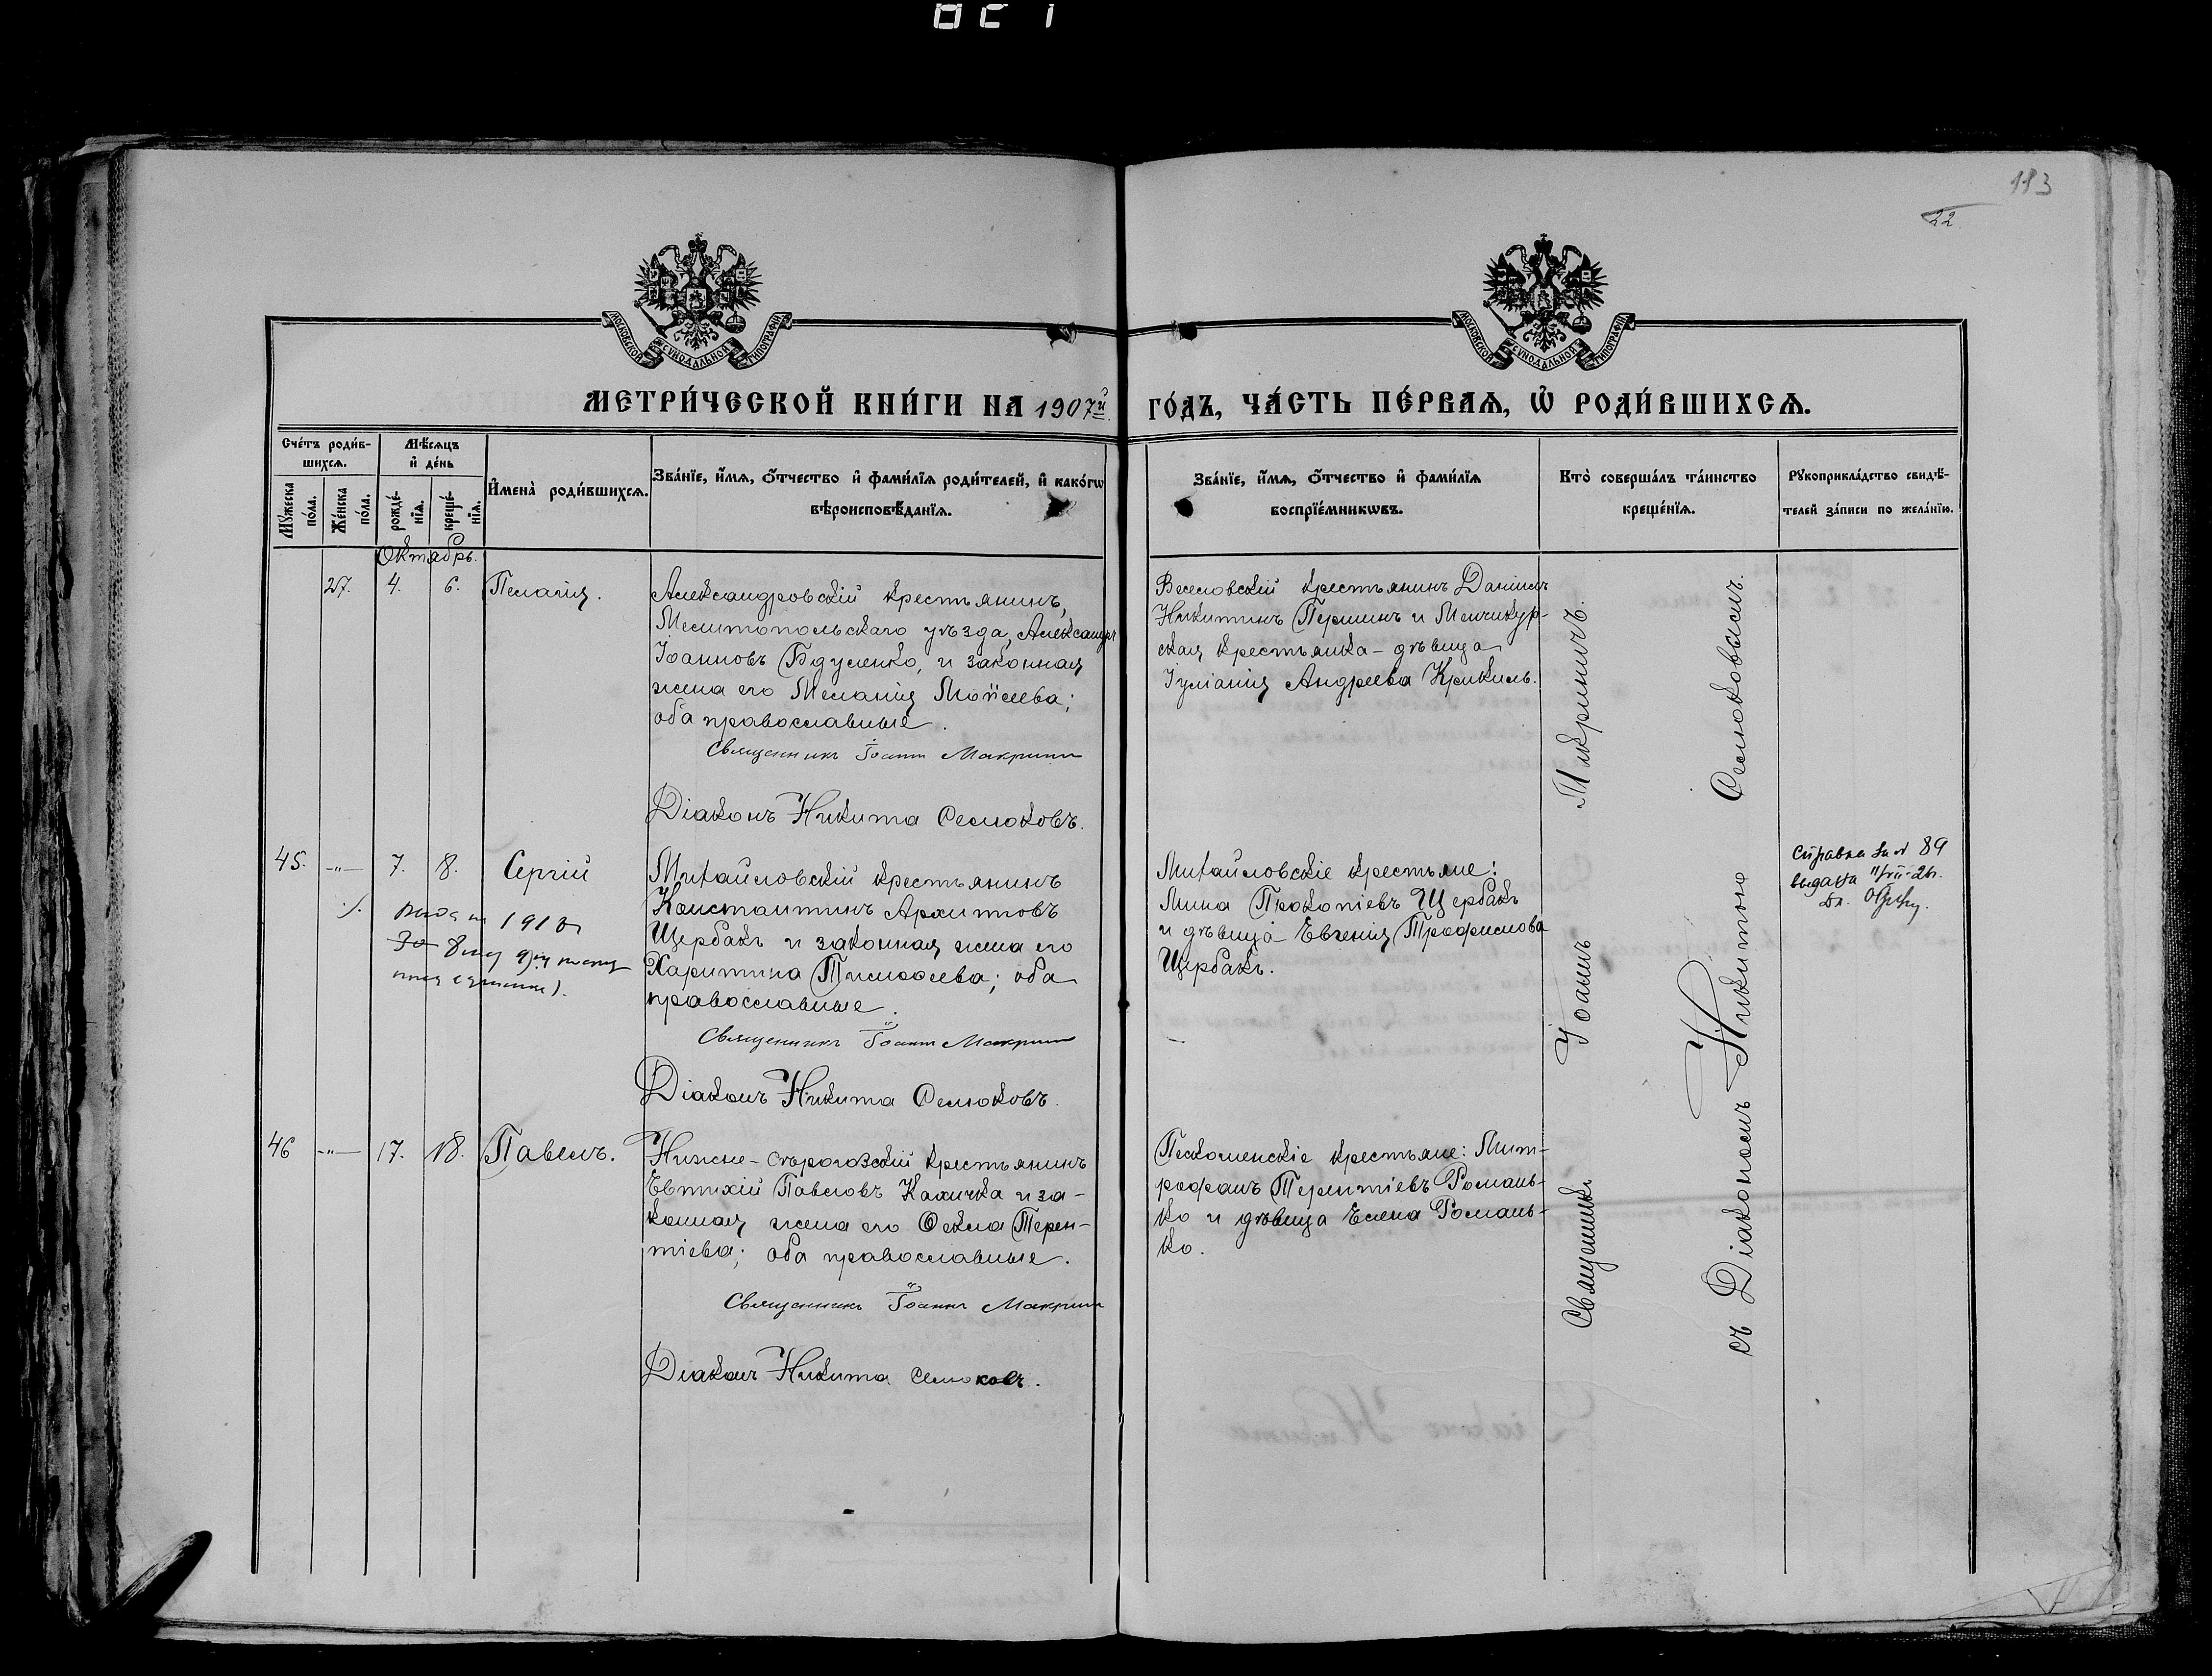 183
22
МОСКОВСКОЙ СѴНОДАЛЬНОЙ ТИПОГРАФІИ
МОСКОВСКОЙ СѴНОДАЛЬНОЙ ТИПОГРАФІИ
МЕТРИ́ЧЕСКОЙ КНИ́ГИ НА 1907й
ГО́ДЪ, ЧА́СТЬ ПЕ́РВАѦ, Ѡ РОДИ́ВШИХСѦ.
Сче́тъ роди́в-
шихсѧ.
Мѣ́сѧцъ
и҆ де́нь
Мꙋ́жеска
по́ла.
Же́нска
по́ла.
рожде́-
нїѧ.
креще́-
нїѧ.
И҆мена̀ роди́вшихсѧ.
Зва́нїе, и҆́мѧ, ѻ҆́тчество и҆ фами́лїѧ роди́телей, и҆ како́гѡ
вѣроисповѣ́данїѧ.
Зва́нїе, и҆́мѧ, ѻ҆́тчество и҆ фами́лїѧ
воспрїе́мникѡвъ.
Кто̀ соверша́лъ та́инство
креще́нїѧ.
Рꙋкоприкла́дство свидѣ́-
телей за́писи по жела́нїю.
Октябрь.
27. 4. 6. Пелагія.
Александровскій крестьянинъ,
Мелитопольскаго уѣзда, Александръ
Іоанновъ Бдуленко, и законная
жена его Меланія Моѵсеева;
оба православные.
Священникъ Іоаннъ Макринъ
Діаконъ Никита Селюковъ.
Веселовскій крестьянинъ Даніилъ
Никитинъ Першинъ и Менчикур-
ская крестьянка-дѣвица
Іуліанія Андреева Крикиль.
45. -"- 7. 8. Сергій
1913
Михайловскій крестьянинъ
Константинъ Архиповъ
Щербакъ и законная жена его
Харитина Тимоѳеева; оба
православные.
Священникъ Іоаннъ Макринъ
Діаконъ Никита Селюковъ.
Михайловскіе крестьяне:
Мина Прокопіевъ Щербакъ
и дѣвица Евгенія Трофимова
Щербакъ.
Справка за № 89
выдана
46 -"- 17. 18. Павелъ.
Нижне-Сѣрогозскій крестьянинъ
Евтихій Павловъ Калички и за-
конная жена его Ѳекла Терен-
тіева; оба православные.
Священникъ Іоаннъ Макринъ
Діаконъ Никита Селюковъ.
Пескошенскіе крестьяне: Мит-
рофанъ Терентіевъ Романь-
ко и дѣвица Елена Романь-
ко.
Священникъ Іоаннъ Макринъ.
съ Діакономъ Никитою Селюковымъ.